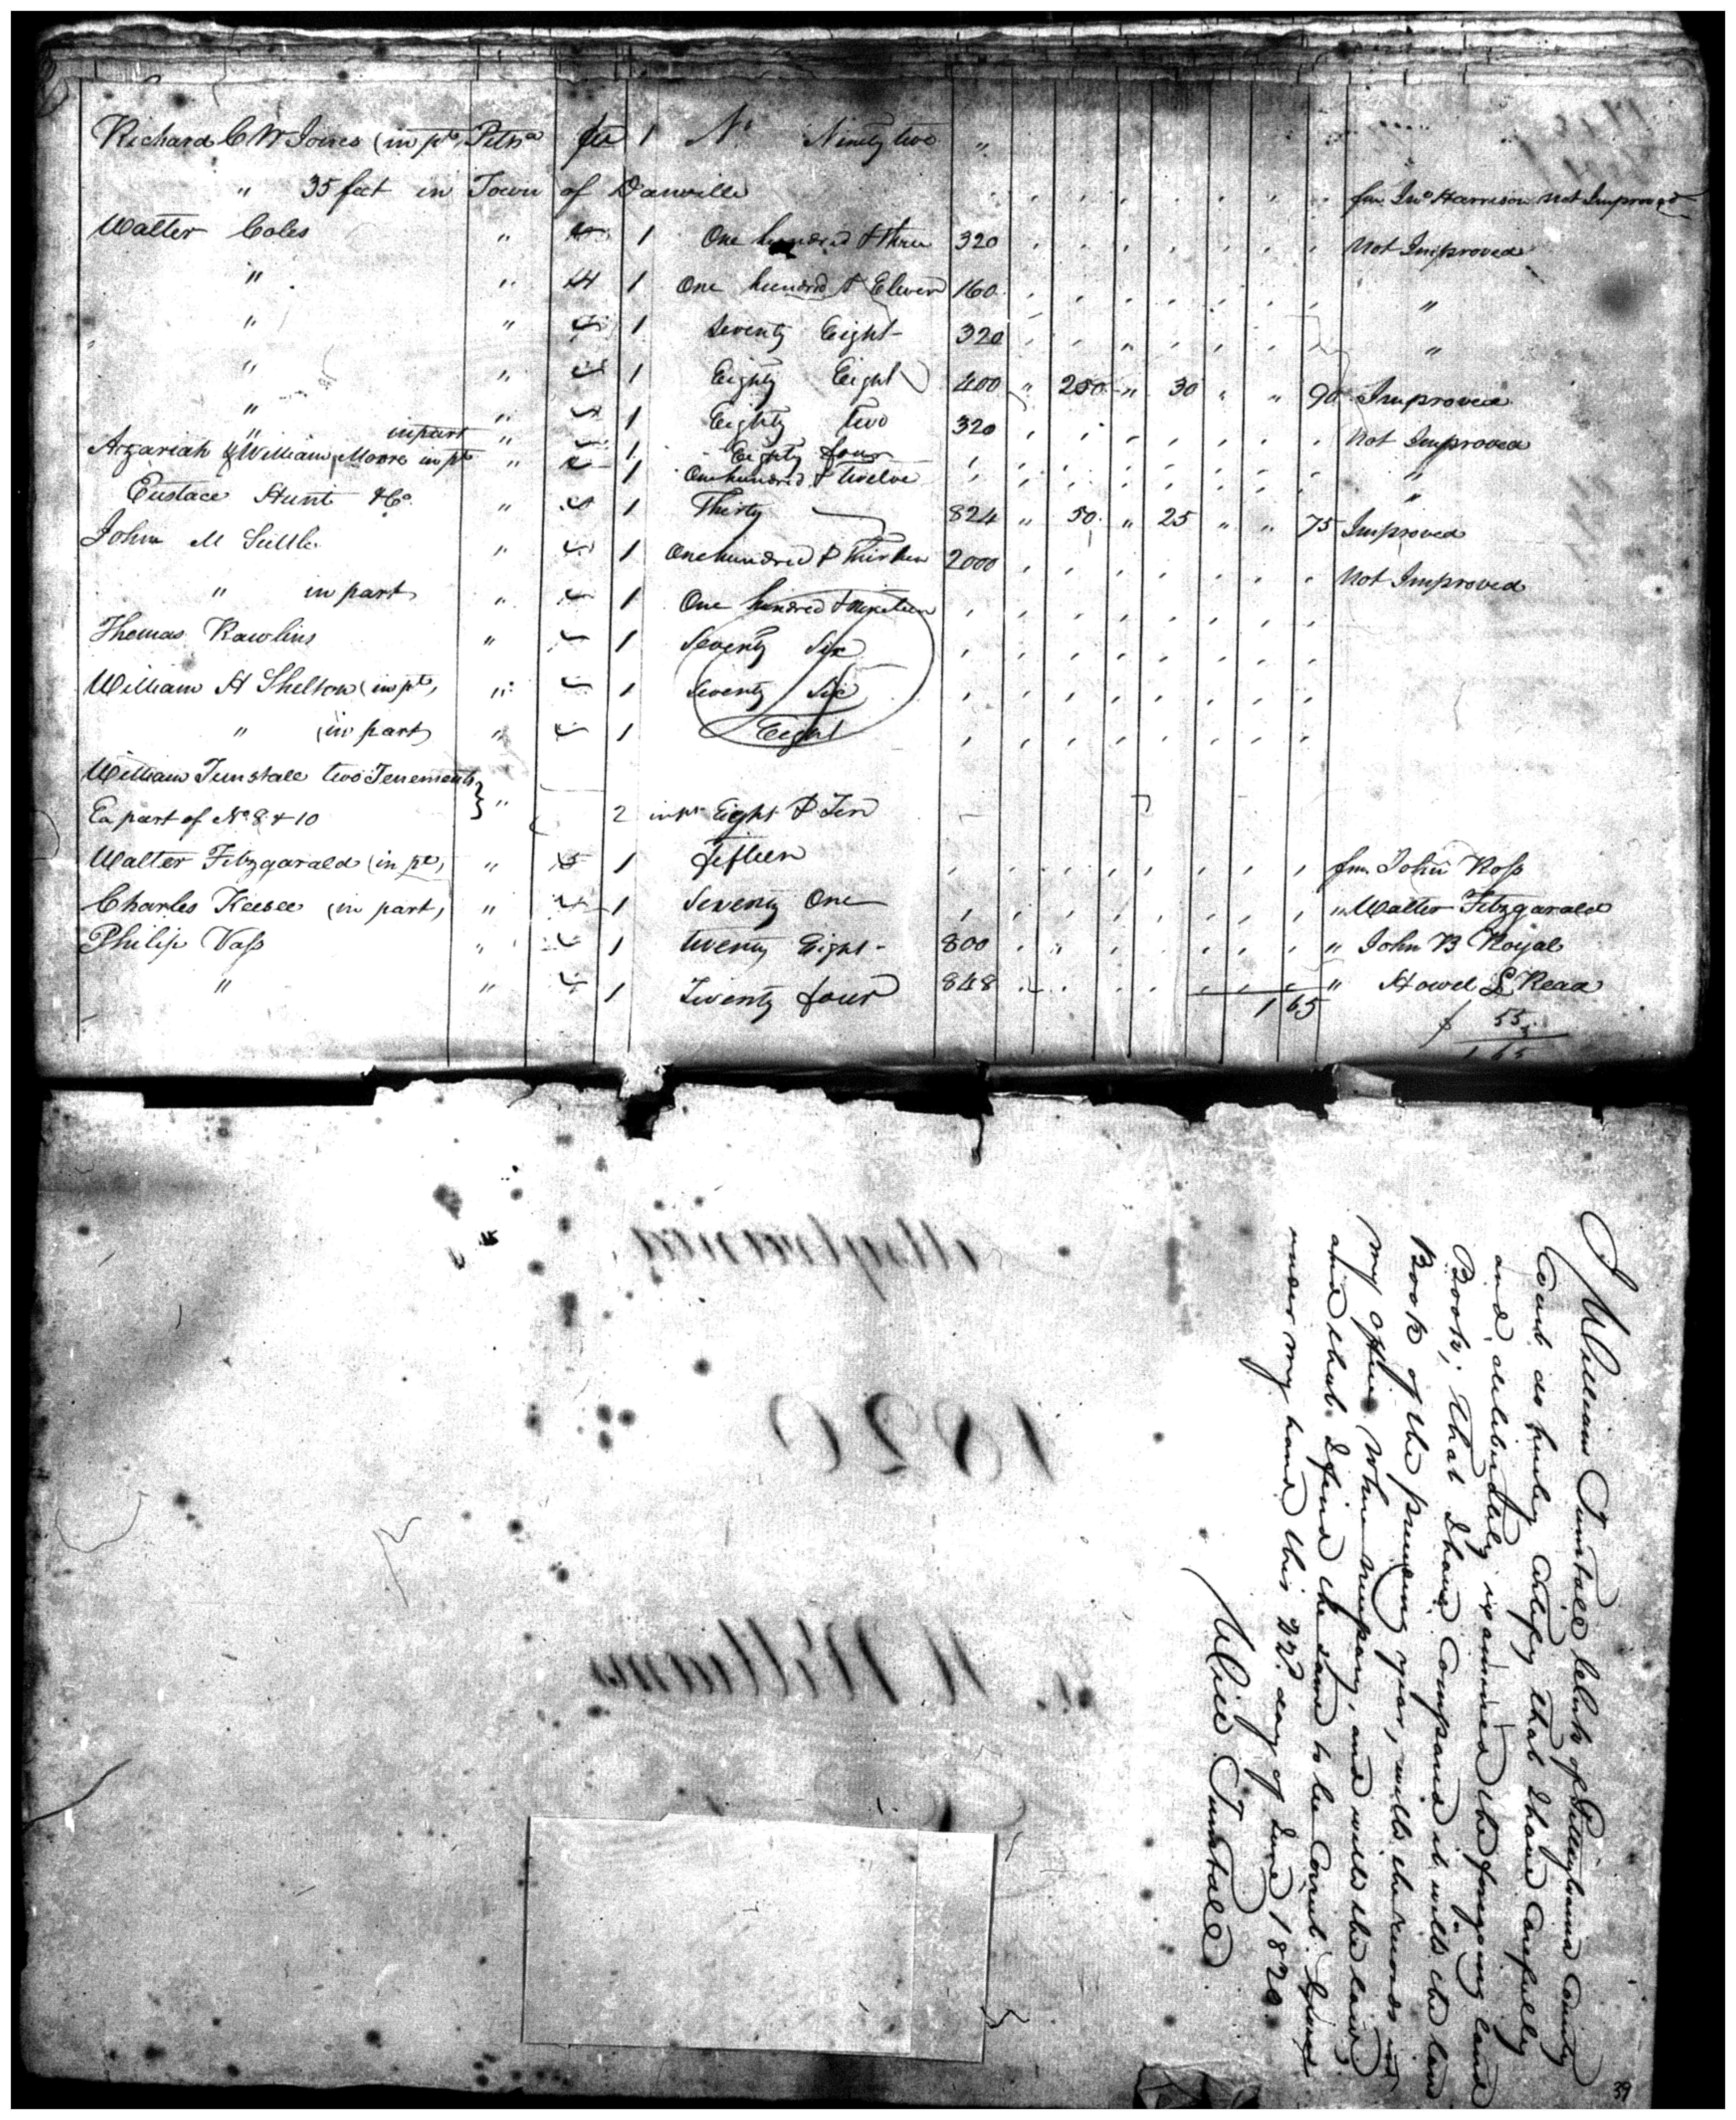 Richard C W Jones (in pt) Pitsa fee 1 No Ninety two "
" 35 feet in Town of Danville fm Jno Harrison not Improved
Walter Coles " 1 One hundred & three 320 Not Improved
" " 1 One hundred & Eleven 160 "
" " 1 Seventy Eight 320 "
" " 1 Eighty Eight 400 " 250 " 30 " " 90 Improved
" " 1 Eighty two 320 Not Improved
" in part " 1 Eighty four "
Azariah & William Moore in pt " 1 One hundred & twelve "
Eustace Hunt & Co. " 1 Thirty 824 " 50 " 25 " " 75 Improved
John M Suttle " 1 One hundred & thirteen 2000 Not Improved
" in part " 1 One hundred & nineteen
Thomas Rawlins " 1 Seventy Six
William H Shelton (in pt) " 1 Seventy Six
" (in part) " 1 Eight
William Tunstall two Tenements
Ea part of No 8 & 10 } " 2 in pt Eight & Ten
Walter Fitzgarald (in pt) " 1 fifteen fm John Ross
Charles Keesee (in part) " 1 Seventy One " Walter Fitzgarald
Philip Vass " 1 twenty Eight 800 " John B Royal
" " 1 Twenty four 848 " Howel L Read
1 65
55
1 65
I William Tunstall Clerk of Pittsylvania County
Court do hereby certify that I have Carefully
and deliberately examined the foregoing land
Book; that I have Compared it with the land
Book of the preceeding year, with the records in
my office when necessary, and with the law;
and that I find the same to be Correct. Given
under my hand this 22d day of June 1820
Will Tunstall
Pittsylvania
1820
W. Williams
39